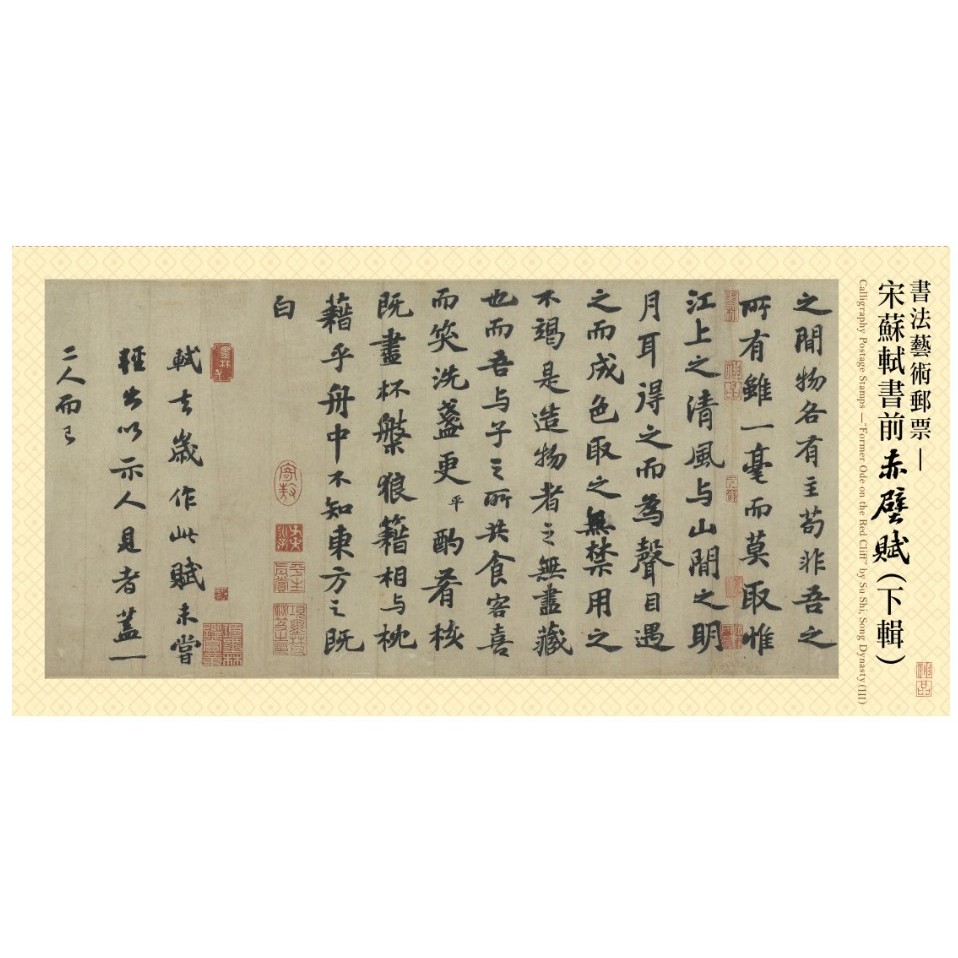 書法藝術郵票—
宋蘇軾書前赤壁賦(下輯)
Calligraphy Postage Stamps —"Former Ode on the Red Cliff" by Su Shi, Song Dynasty (III)
之間物各有主苟非吾之
所有雖一毫而莫取惟
江上之清風与山間之明
月耳得之而為聲目遇
之而成色取之無禁用之
不竭是造物者之無盡藏
也而吾与子之所共食客喜
而笑洗盞更平酌肴核
既盡杯槃狼籍相与枕
藉乎舟中不知東方之既
白
軾去歲作此賦未嘗
輕出以示人見者蓋一
二人而已